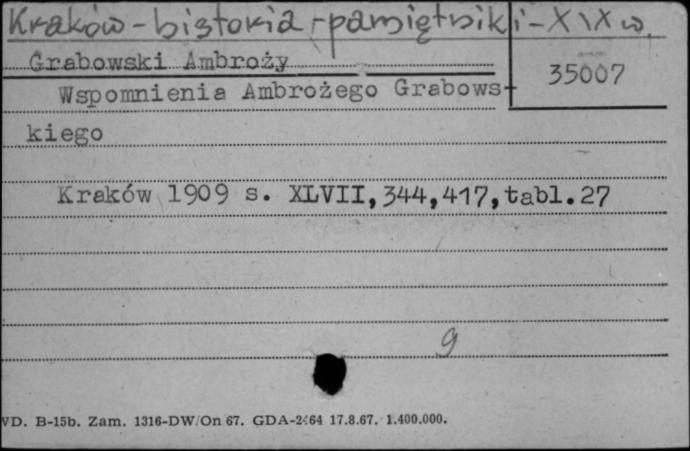 Kraków - historia - pamiętniki - XIX w.
Grabowski Ambroży
35007
Wspomnienia Ambrożego Grabows-
kiego
Kraków 1909 s. XLVII,344,417,tabl.27
g
VD. B-15b. Zam. 1316-DW/On 67. GDA-2464 17.8.67. 1.400.000.